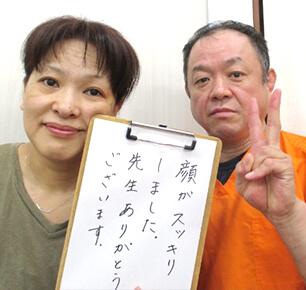 顔がスッキリ
しました。
先生ありがとう
ございます。